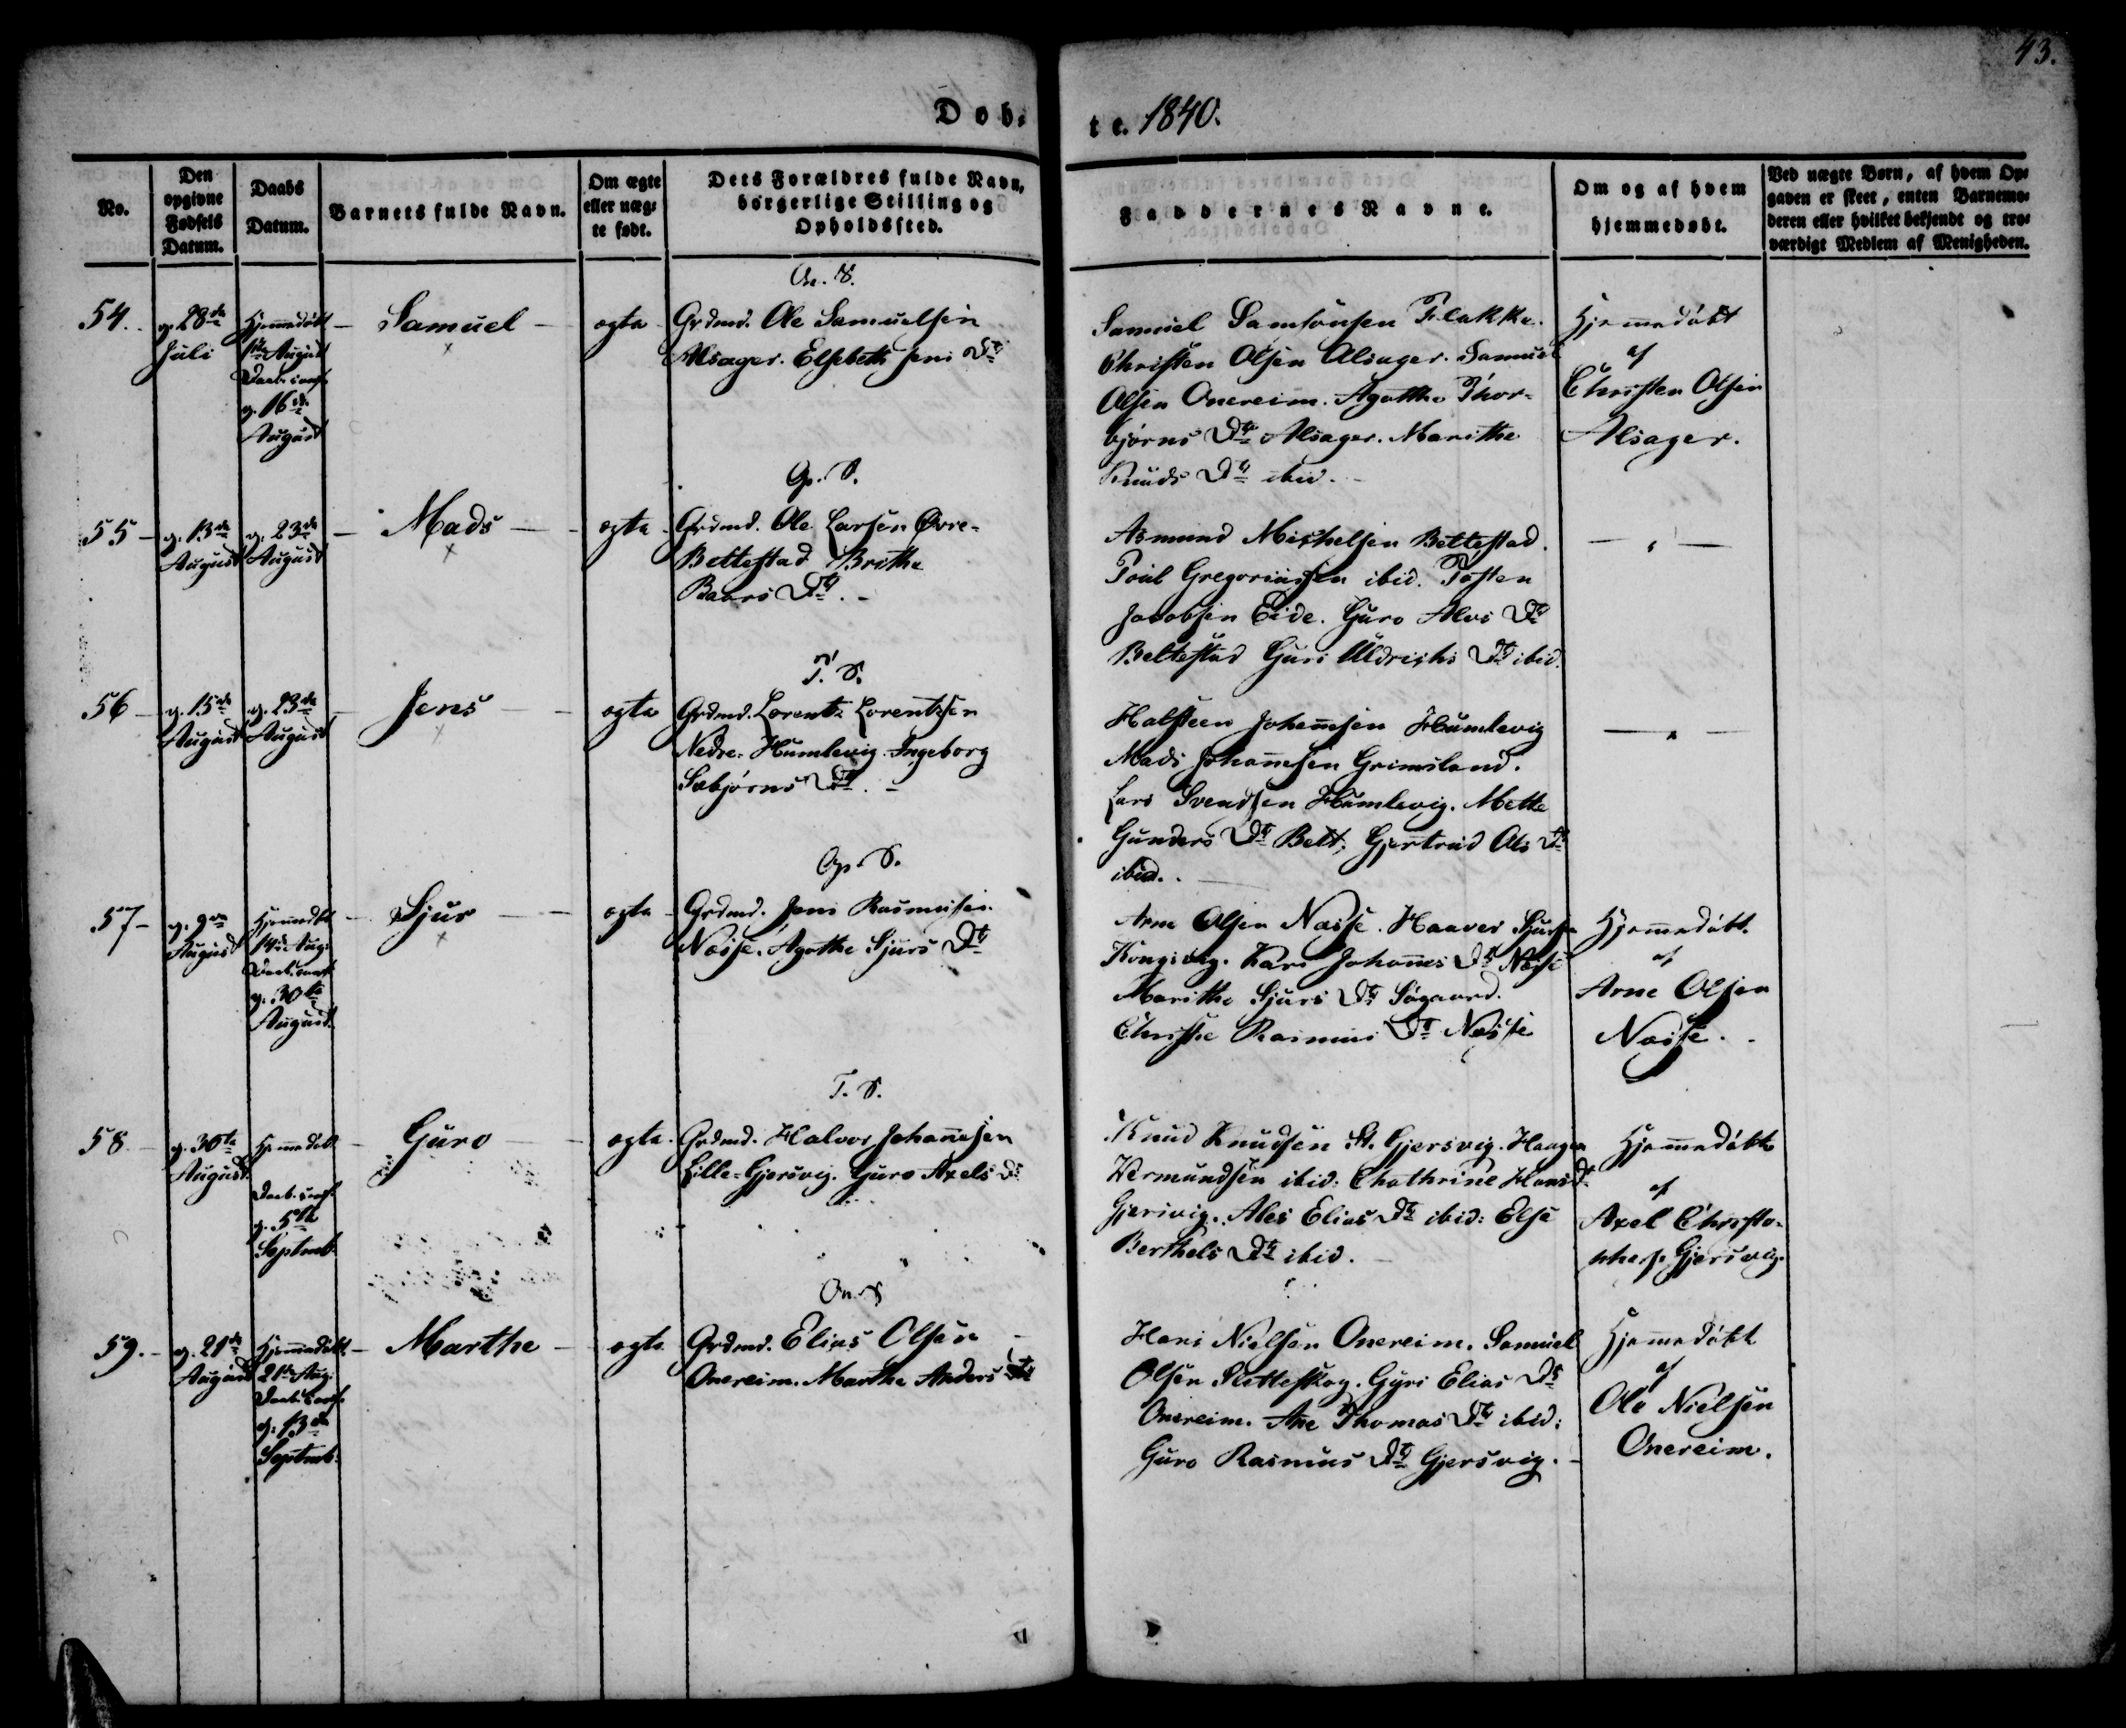 43.
Døb-
te. 1840.
No.
Den opgivne Fødsels Datum.
Daabs Datum.
Barnets fulde Navn.
Om ægte eller uæg-te født.
Dets Forældres fulde Navn, borgerlige Stilling og Opholdssted.
Faddernes Navne.
Om og af hvem hjemmedøbt.
Ved uægte Børn, af hvem Op-gaven er skeet, enten Barnemo-deren eller hvilket bekjendt og tro-værdigt Medlem af Menigheden.
On. S.
54.
g. 28de
Juli
Hjemmedøbt
August
Daab. conf.
g. 16de
August
Samuel
ægte
Grdmd. Ole Samuelsen
Alsager. Elsebeth Jens Dtr
Samuel Samsonsen Flakke.
Christen Olsen Alsager. Samuel
Olsen Onereim. Agathe Thor-
bjørns Dtr Alsager. Marithe
Knuds Dtr ibid.
Hjemmedøbt
af
Christen Olsen
Alsager.
Op. S.
55
g. 13de
August
g. 23de
August
Mads
ægte
Grdmd. Ole Larsen Øvre-
Beltestad Brithe
Baars Dtr.
Asmund Michelsen Beltestad.
Poul Gregoriussen ibid. Tosten
Jacobsen Eide. Guro Alvs Dtr
Beltestad Guri Uldrichs Dtr ibid.
T. S.
56
g. 15de
August
g. 23de
August
Jens
ægte
Grdmd. Lorentz Lorentzsen
Nedre-Humlevig. Ingeborg
Sæbjørns Dtr.
Halsteen Johannesen Humlevig
Mads Johannesen Grimsland.
Lars Svendsen Humlevig. Mette
Gunders Dtr Belt: Gjertrud Ols Dtr
ibid.
Op. S.
57
g. 9de
August
Hjemmedøbt
14de Aug:
Daab. conf.
g. 30te
August
Sjur
ægte
Grdmd. Jens Rasmussen
Næsse. Agathe Sjurs Dtr
Arne Olsen Næsse. Haaver Sjursen
Kongsvig. Kari Johannes Dtr Næsse
Marithe Sjurs Dtr Søgaard.
Christie Rasmus Dtr Næsse
Hjemmedøbt
af
Arne Olsen
Næsse.
T. S.
58
g. 30te
August
Hjemmedøbt
Daab. conf.
g. 5te
Septmb.
Guro
ægte
Grdmd. Halvor Johannesen
Lille-Gjersvig. Guro Axels Dr
Knud Knudsen St. Gjersvig. Haagen
Vermundsen ibid: Chathrine Hans Dt
Gjersvig. Ales Elias Dtr ibid: Else
Berthels Dtr ibid.
Hjemmedøbt
af
Axel Christo-
phers. Gjersvig.
On. S
59.
g. 21de
August
Hjemmedøbt
21de Aug:
Daab. conf.
g. 13de
Septmb.
Marthe
ægte
Grdmd. Elias Olsen
Onereim. Marthe Anders Dtr
Hans Nielsen Onereim. Samuel
Olsen Slotteskog. Gyri Elias Dr
Onereim. Ane Thomas Dtr ibid:
Guro Rasmus Dtr Gjersvig.
Hjemmedøbt
af
Ole Nielsen
Onereim.